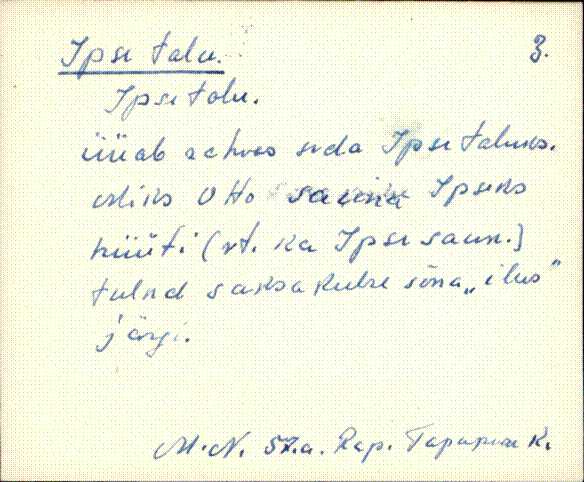 Ipse talu. 3.
Ipse talu.
üüab rahvas seda Ipse taluks.
miks Otto sauna Ipseks
hüüti (vt. ka Ipse saun.)
tulnd saksakeelse sõna „ilus"
järgi.
M.N. 57.a. Rap. K.